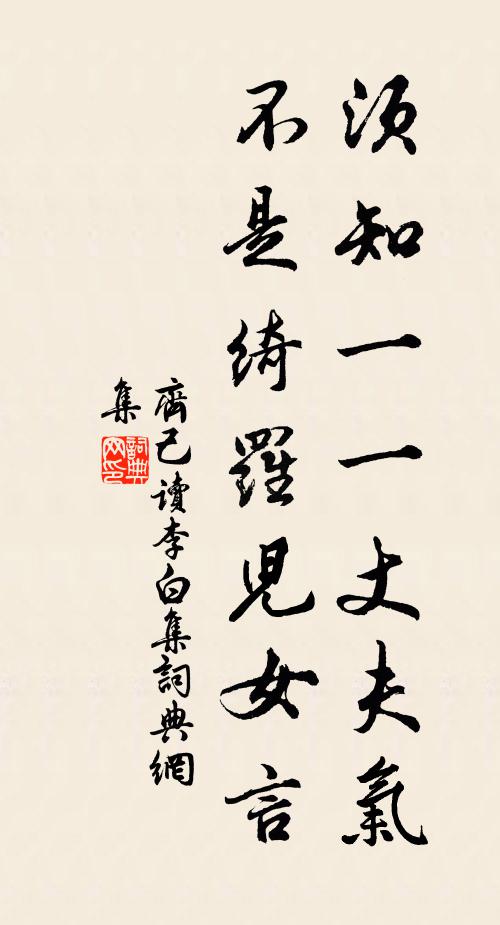 須知一一丈夫氣
不是綺羅兒女言
齊己讀李白集詞典網
集
詞典
网印